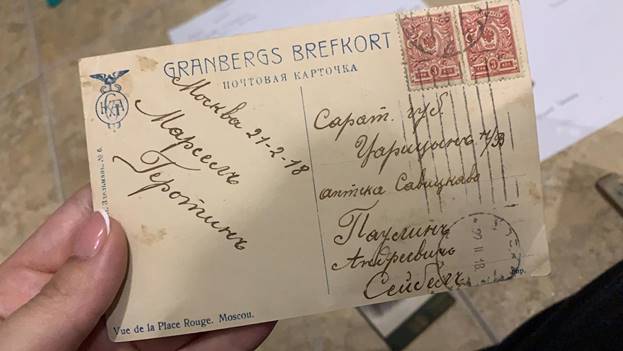 GRANBERGS BREFKORT
ПОЧТОВАЯ КАРТОЧКА
Москва 21-2-18
Марсель
Геротинъ
Сарат. губ.
Царицынъ н/В
аптека Савицкаго
Паулинъ
Андреевичъ
Сейбель
Vue de la Place Rouge. Moscou.